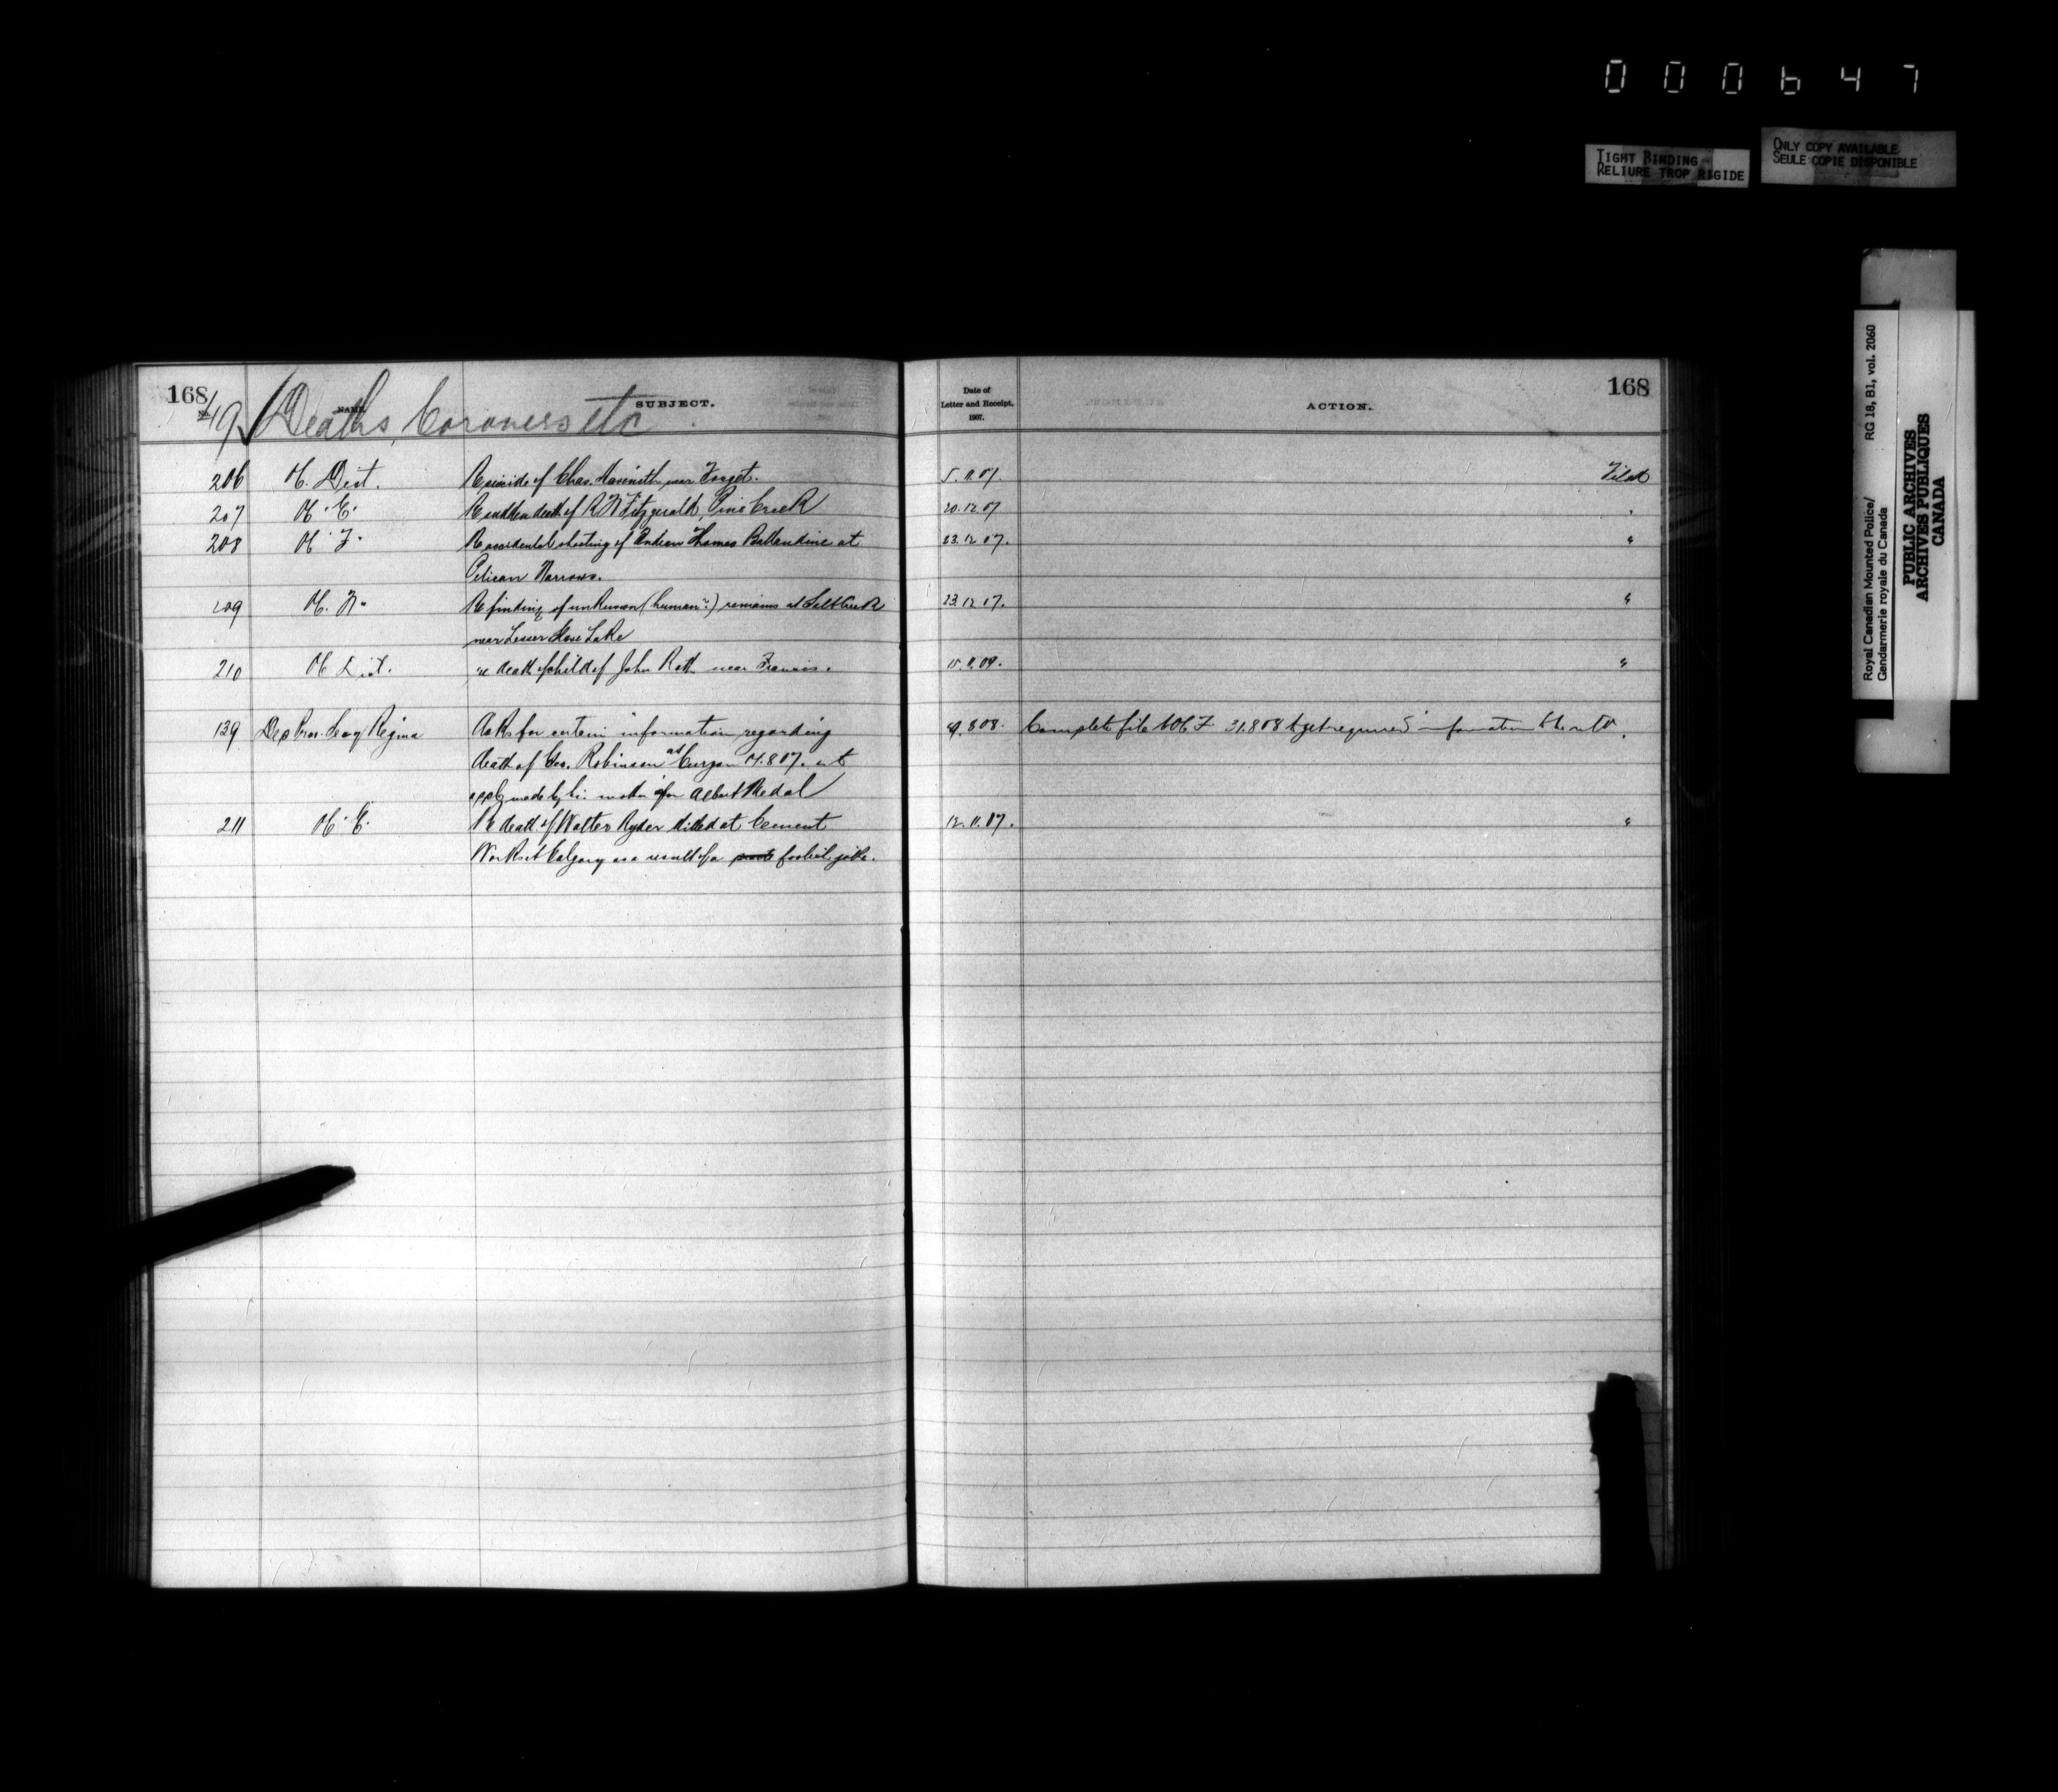 000647
TIGHT BINDING
RELIURE TROP RIGIDE
ONLY COPY AVAILABLE
SEULE COPIE DISPONIBLE
Royal Canadian Mounted Police/ RG 18, B1, vol. 2060
Gendarmerie royale du Canada
PUBLIC ARCHIVES
ARCHIVES PUBLIQUES
CANADA
168 168
No. NAME. SUBJECT. Date of Letter and Receipt, 1907. ACTION.
149 Deaths, Coroners etc
206 Dist. Re suicide of Chas. near Forget. 5.11.07. Filed
207 "E" Re sudden death of R Fitzgerald, Pine Creek 20.12.07 "
208 "F" Re accidental shooting of Indian Thomas Ballandine at 23.12.07. "
Pelican Narrows.
209 "N" Re finding of unknown (human?) remains at Salt Creek 23.12.07. "
near Lesser Slave Lake
210 Dist. re death of child of John Roth near Francis. "
139 Dep Regina Asks for certain information regarding 808. Complete file to OC F 31.8.08 to get required information "
death of Geo. Robinson at Curzon 8 07.
made by his mother for Albert Medal
211 "E" Re death of Walter Ryder killed at Cement 12.11.07. "
Works at Calgary as a result of a foolish joke.